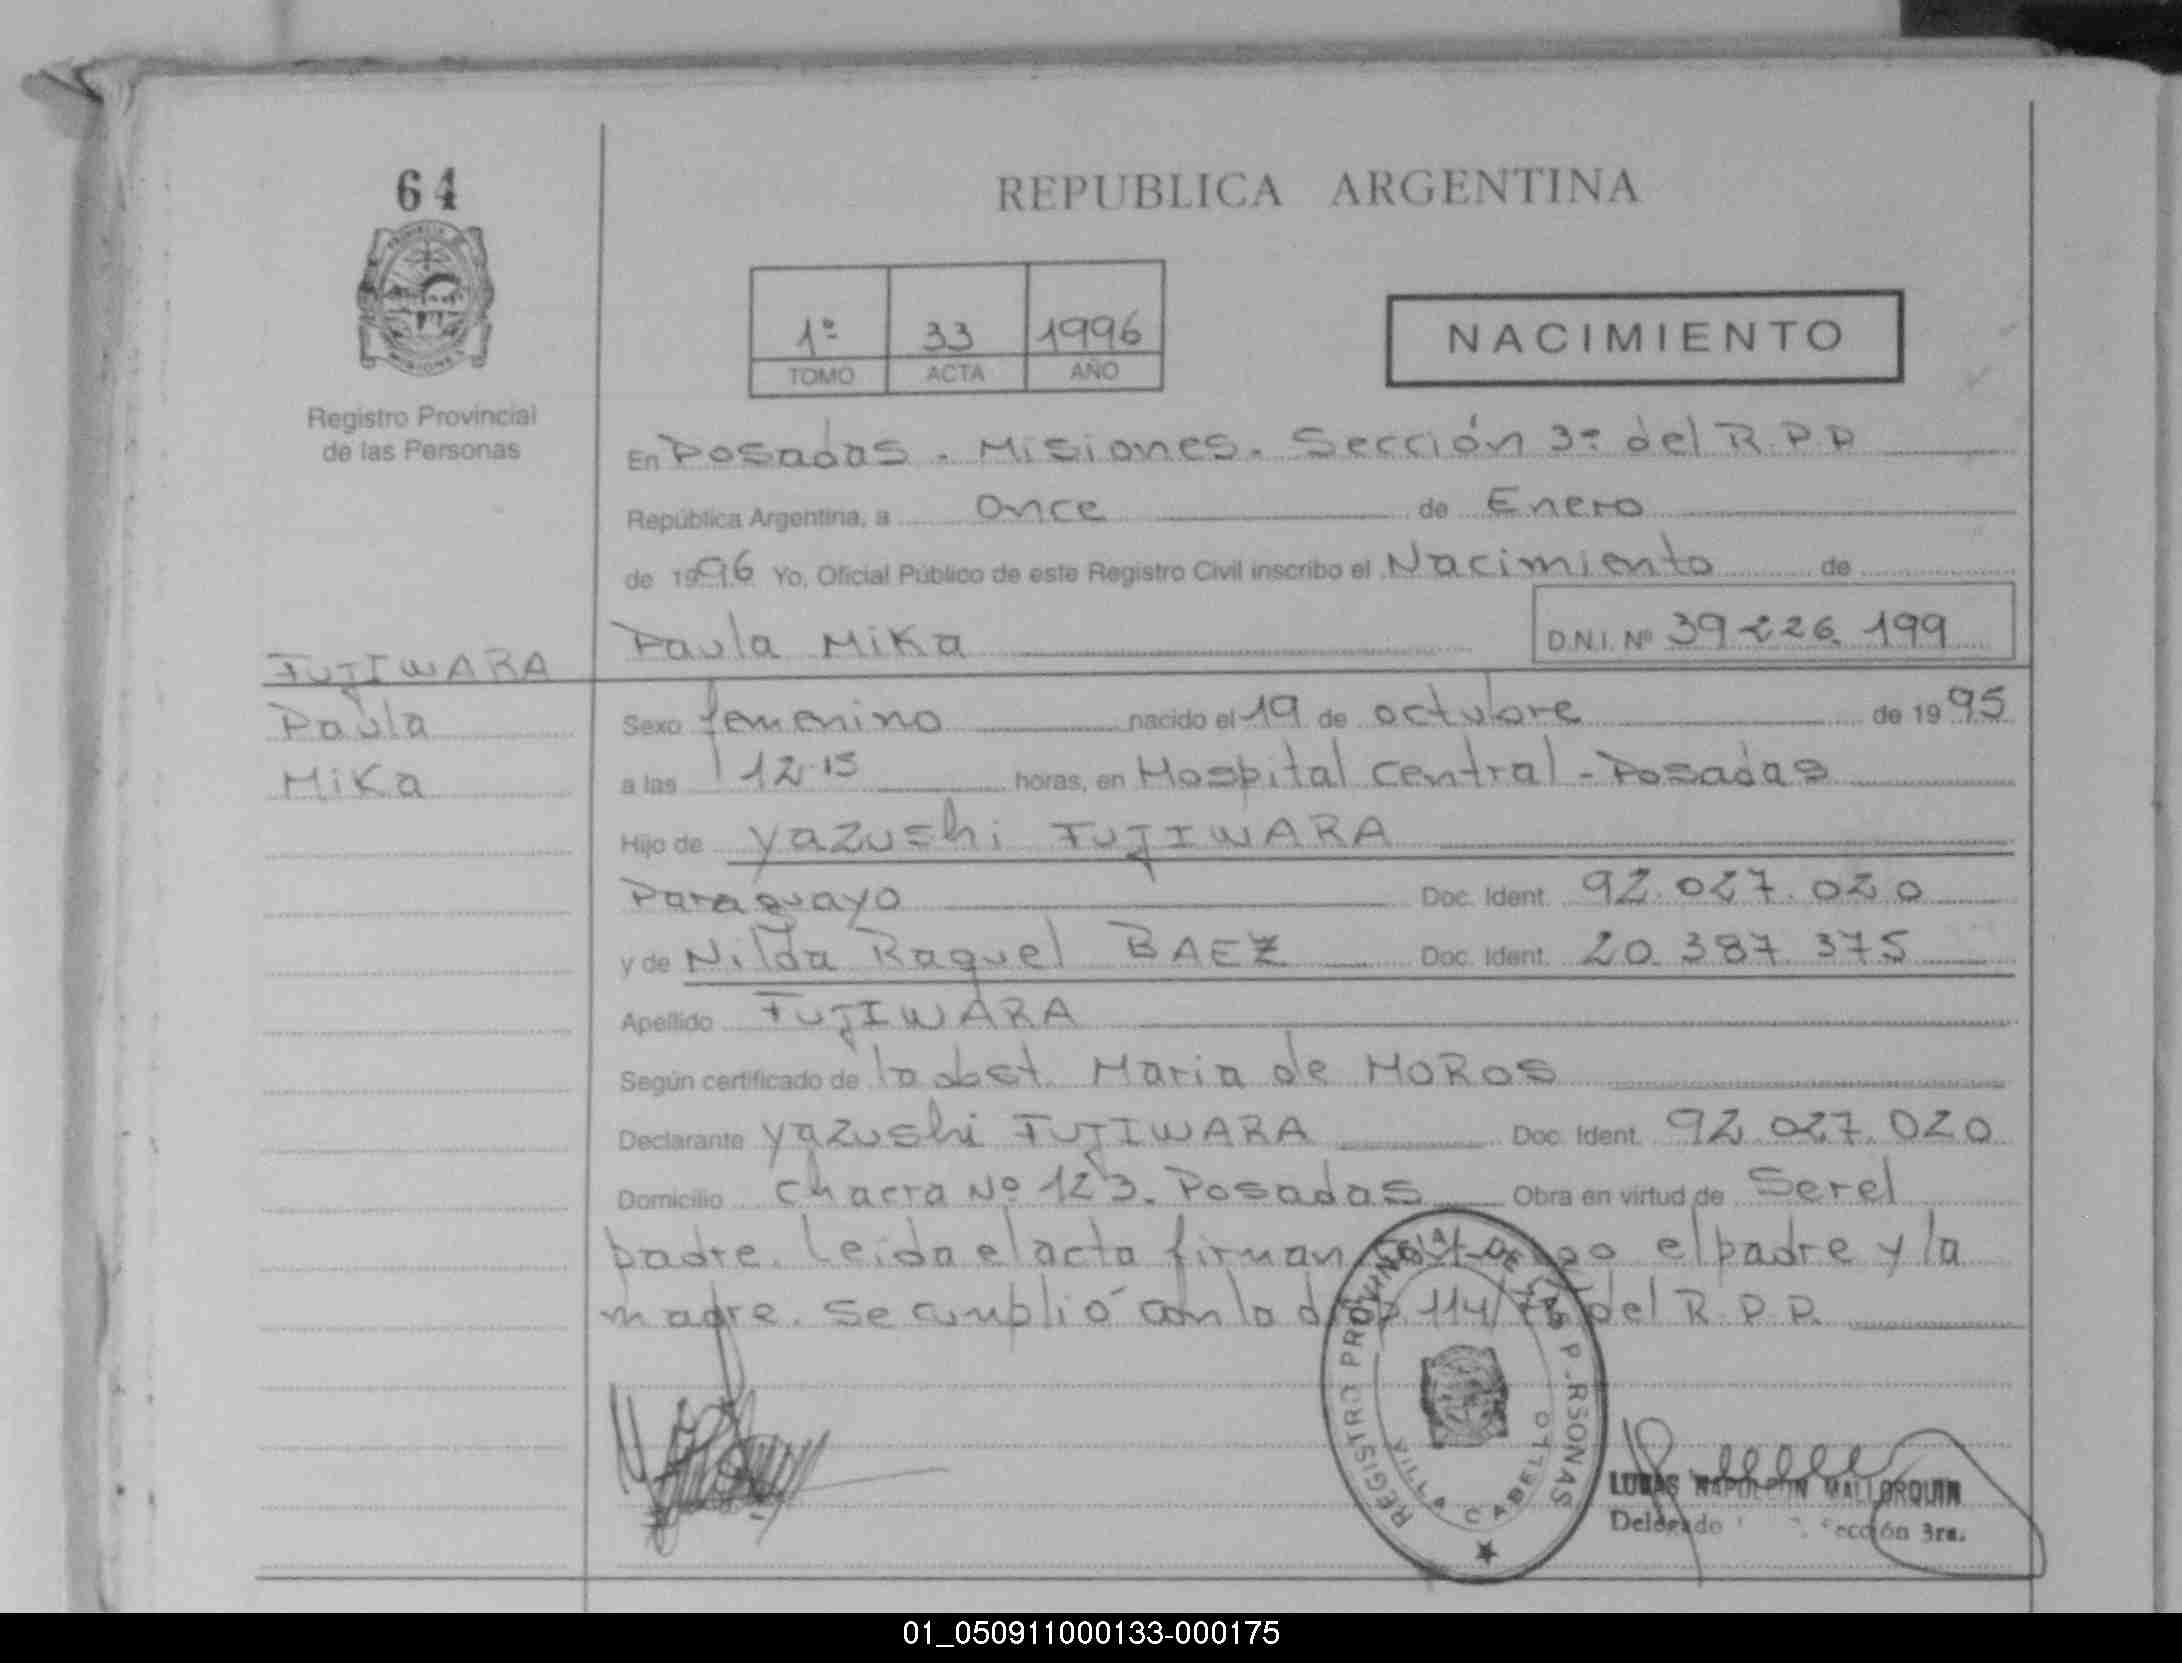 64
REPUBLICA ARGENTINA
1º 33 1996
TOMO ACTA AÑO
NACIMIENTO
Registro Provincial
de las Personas
En Posadas. Misiones. Sección 3ª del R.P.P
República Argentina, a once de Enero
de 1996 Yo, Oficial Público de este Registro Civil inscribo el Nacimiento de
Paula Mika D.N.I. Nº 39.226.199
FUJIWARA
Paula
Mika
Sexo femenino nacido el 19 de octubre de 1995
a las 12.15 horas, en Hospital Central - Posadas
Hijo de Yazushi FUJIWARA
Paraguayo Doc. Ident. 92.027.020
y de Nilda Raquel BAEZ Doc. Ident. 20.387.375
Apellido FUJIWARA
Según certificado de la obst. Maria de MOROS
Declarante Yazushi FUJIWARA Doc. Ident. 92.027.020
Domicilio Chacra Nº 123. Posadas Obra en virtud de Ser el
padre. Leida el acta firman el padre y la
madre. Se cumplió con la 114/ del R.P.P.
REGISTRO PROVINCIAL DE LAS P RSONAS
VILLA CABELLO
LUCAS NAPOLEON MALLORQUIN
Delegado Sección 3ra.
01_050911000133-000175